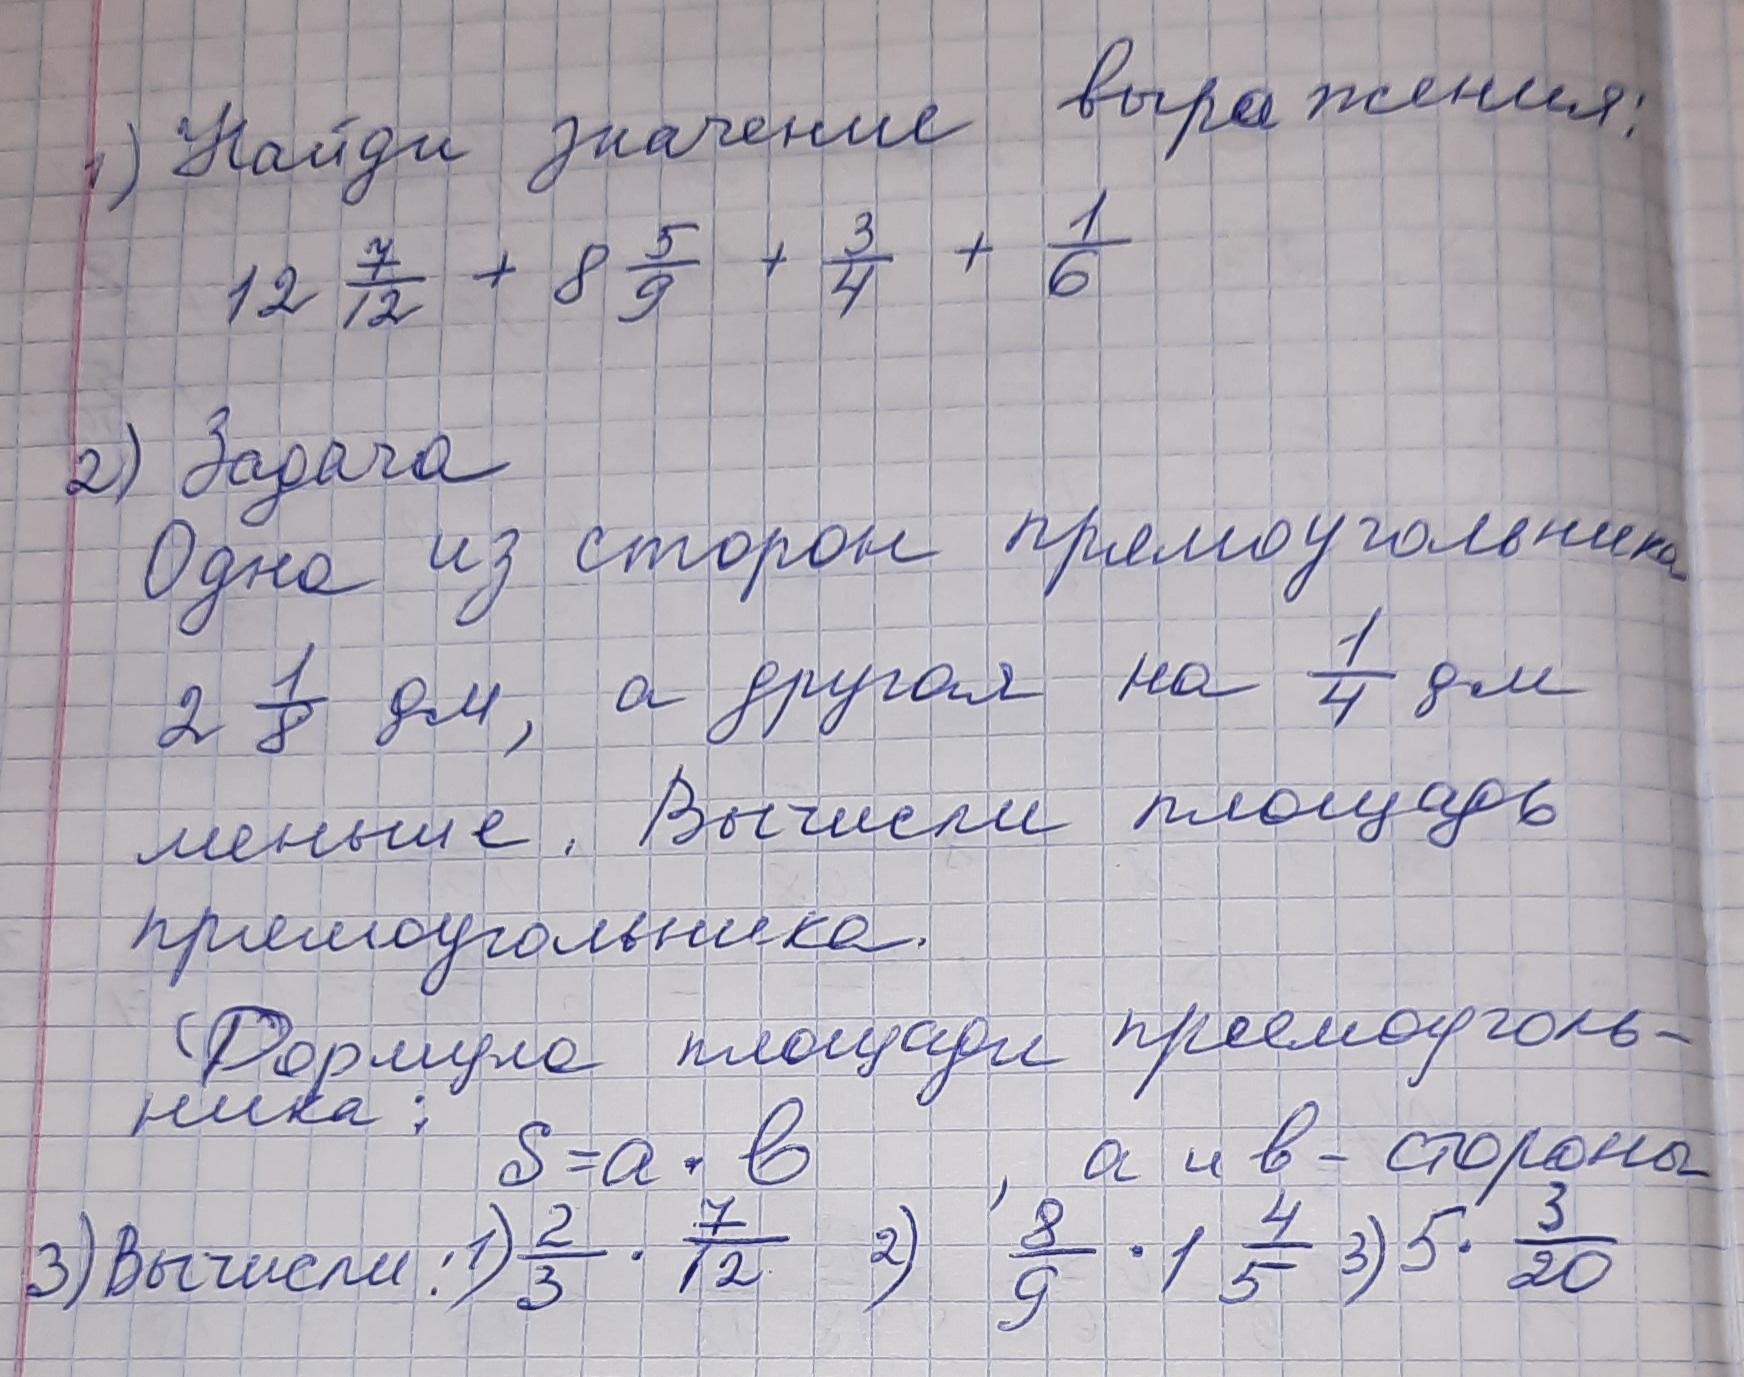 1) Найди значение выражения:
12 7/12 + 8 5/9 + 3/4 + 1/6
2) Задача
Одна из сторон прямоугольника
2 1/8 дм, а другая на 1/4 дм
меньше. Вычисли площадь
прямоугольника.
(Формула площади прямоуголь-
ника:
S=a·b , a и b - стороны
3) Вычисли: 1) 2/3 · 7/12 2) 8/9 · 1 4/5 3) 5 · 3/20